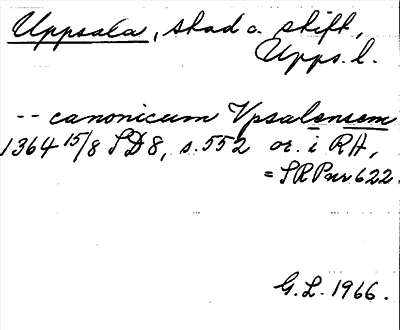 Uppsala, stad o. stift,
Upps. l.
-- canonicum Vpsalensem
1364 15/8 SD 8, s. 552 or. i RA,
= SRP nr. 622.
G. L. 1966.